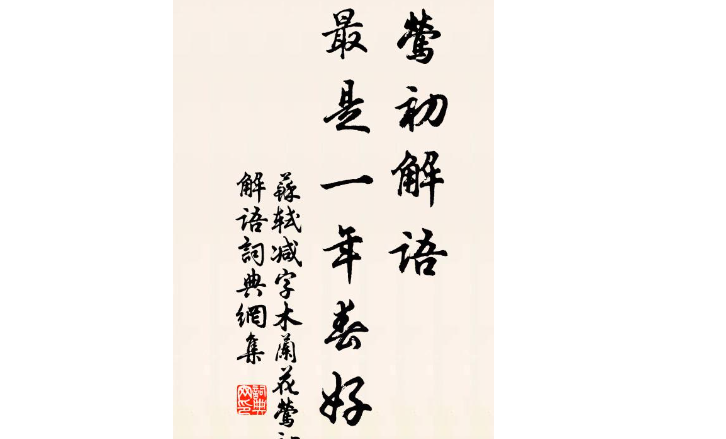 莺初解语
最是一年春好
蘇轼减字木蘭花莺初
解语詞典網集